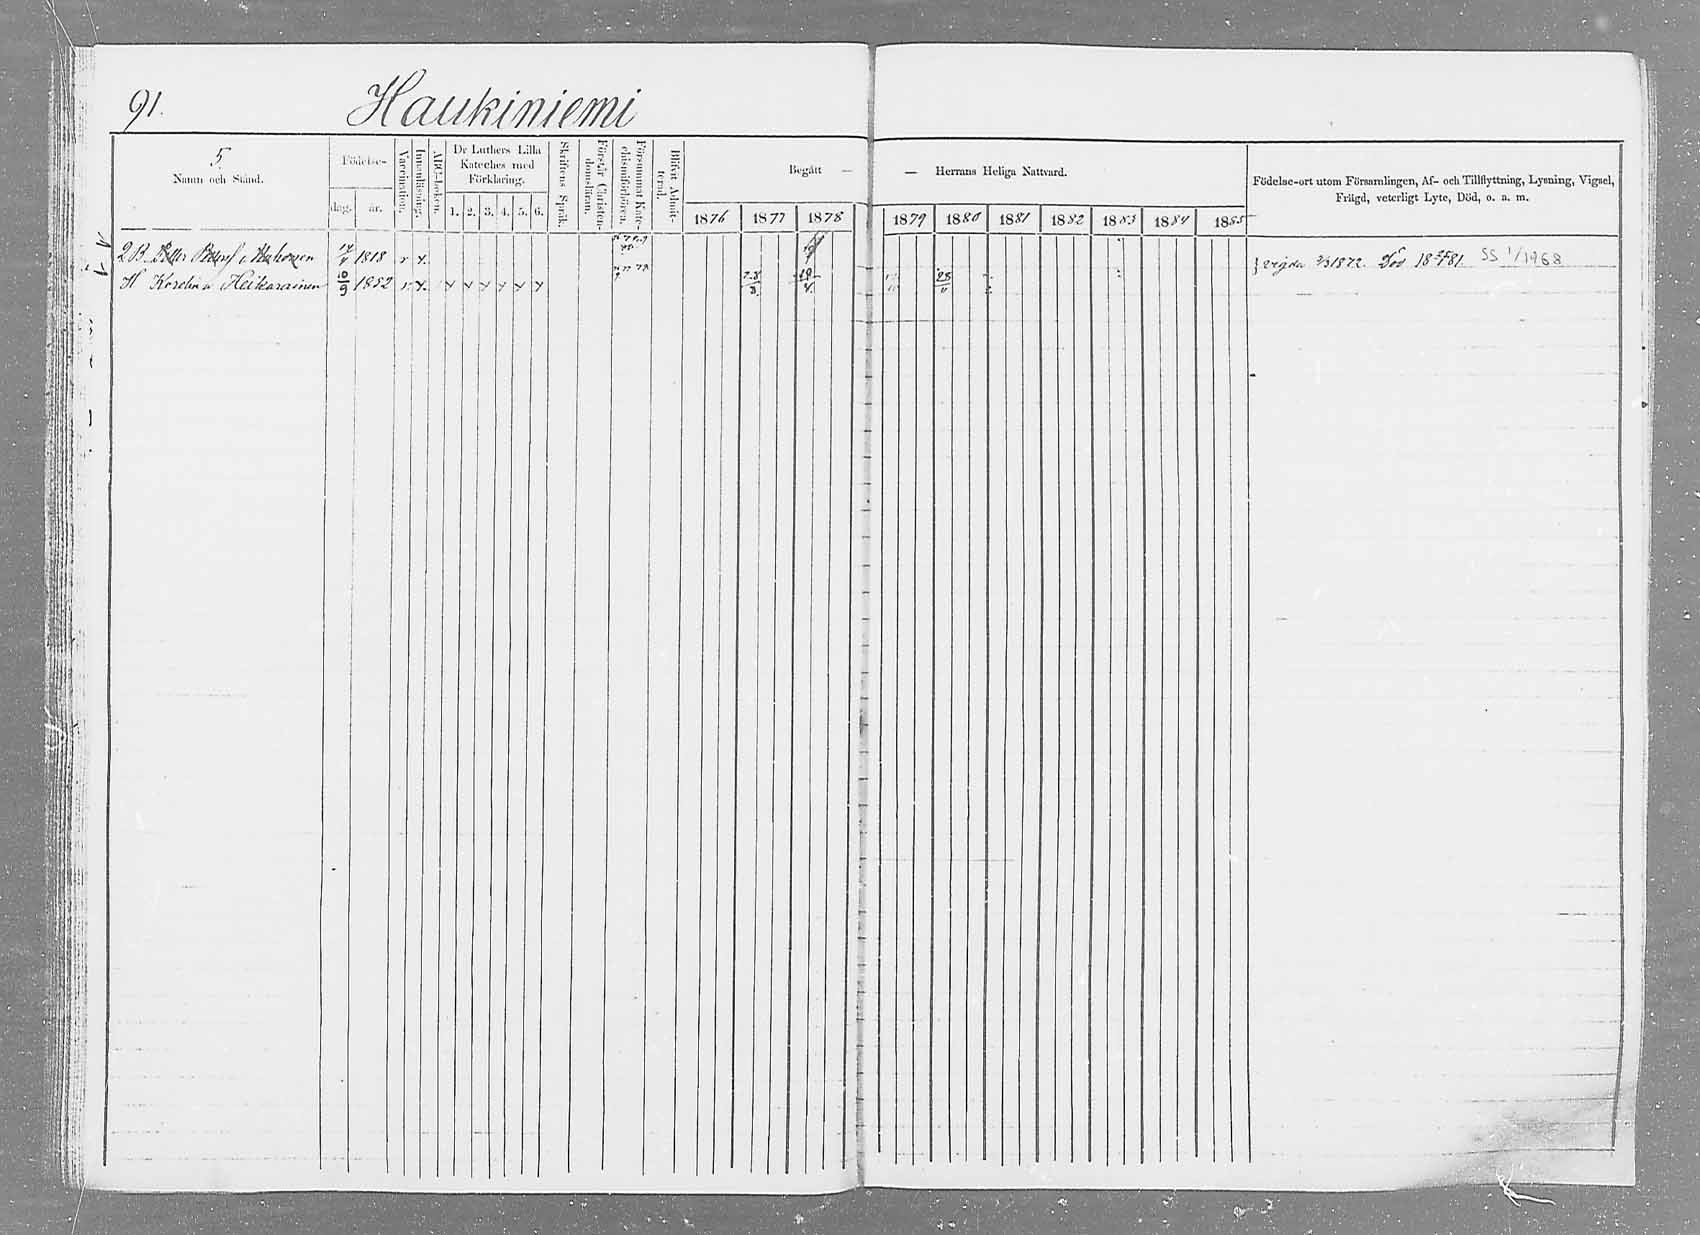 91.
Haukiniemi
5
Namn och Stånd.
Födelse-
dag.
år.
Vaccination.
Innanläsning.
ABC-boken.
Dr Luthers Lilla
Kateches med
Förklaring.
1. 2. 3. 4. 5. 6.
Skriftens Språk.
Förstår Christen-
domsläran.
Försummat Kate-
chismiförhören.
Blifvit Admit-
terad.
Begått —
— Herrans Heliga Nattvard.
1876 1877 1878
1879 1880 1881 1882 1883 1884 1885
Födelse-ort utom Församlingen, Af- och Tillflyttning, Lysning, Vigsel,
Frägd, veterligt Lyte, Död, o. a. m.
2 B Petter 1818 v x
} vigda 3/3 1872. Död 18 81. SS 1/1968
H Korelina Heikarainen 10/9 1852 v x x x x x x x 28/11